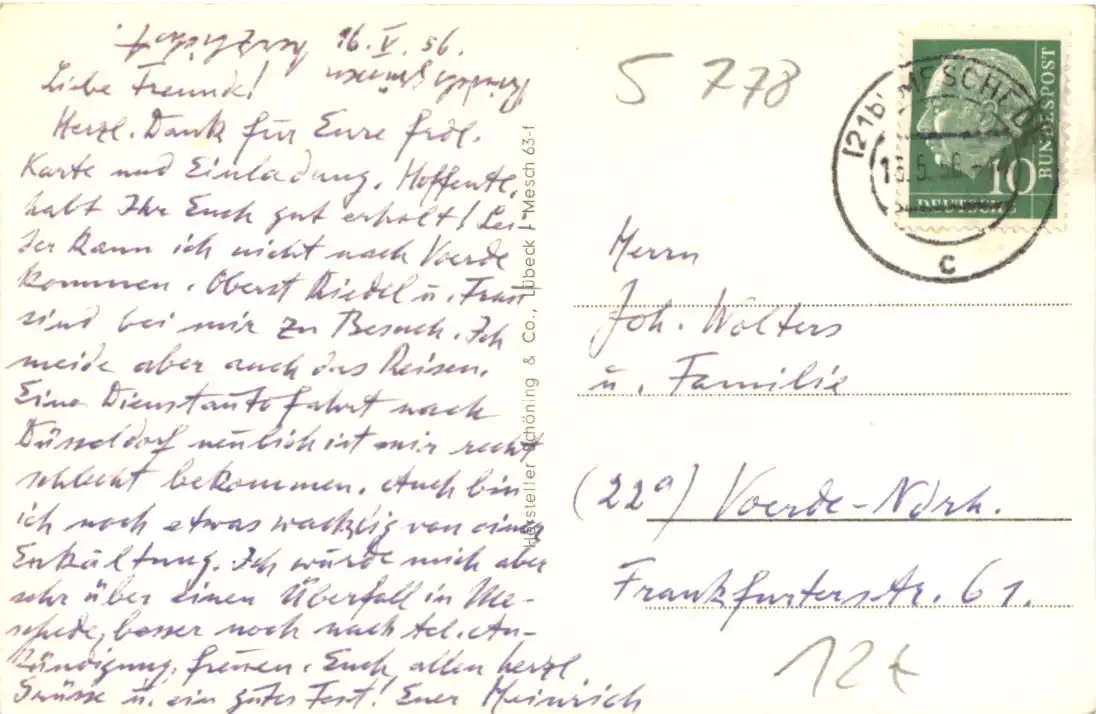 16.V.56.
Liebe Freunde!
Herzl. Dank für Eure fröl.
Karte und Einladung. Hoffentl.
habt Ihr Euch gut erholt! Lei-
der kann ich nicht nach Voerde
kommen. Oberst Riedel u. Frau
sind bei mir zu Besuch. Ich
meide aber auch das Reisen.
Eine Dienstautofahrt nach
Düsseldorf neulich ist mir recht
schlecht bekommen. Auch bin
ich noch etwas wacklig von einer
Erkältung. Ich würde mich aber
sehr über einen Überfall in Me-
schede, besser noch nach tel. An-
kündigung, freuen. Euch allen herzl
Grüsse u. ein gutes Fest! Euer Heinrich
Hersteller Schöning & Co., Lübeck Mesch 63-f
S 778
(21b) MESCHEDE
.5.56
c
10
DEUTSCHE
BUNDESPOST
Herrn
Joh. Wolters
u. Familie
(22a) Voerde-Ndrh.
Frankfurterstr. 61.
12t